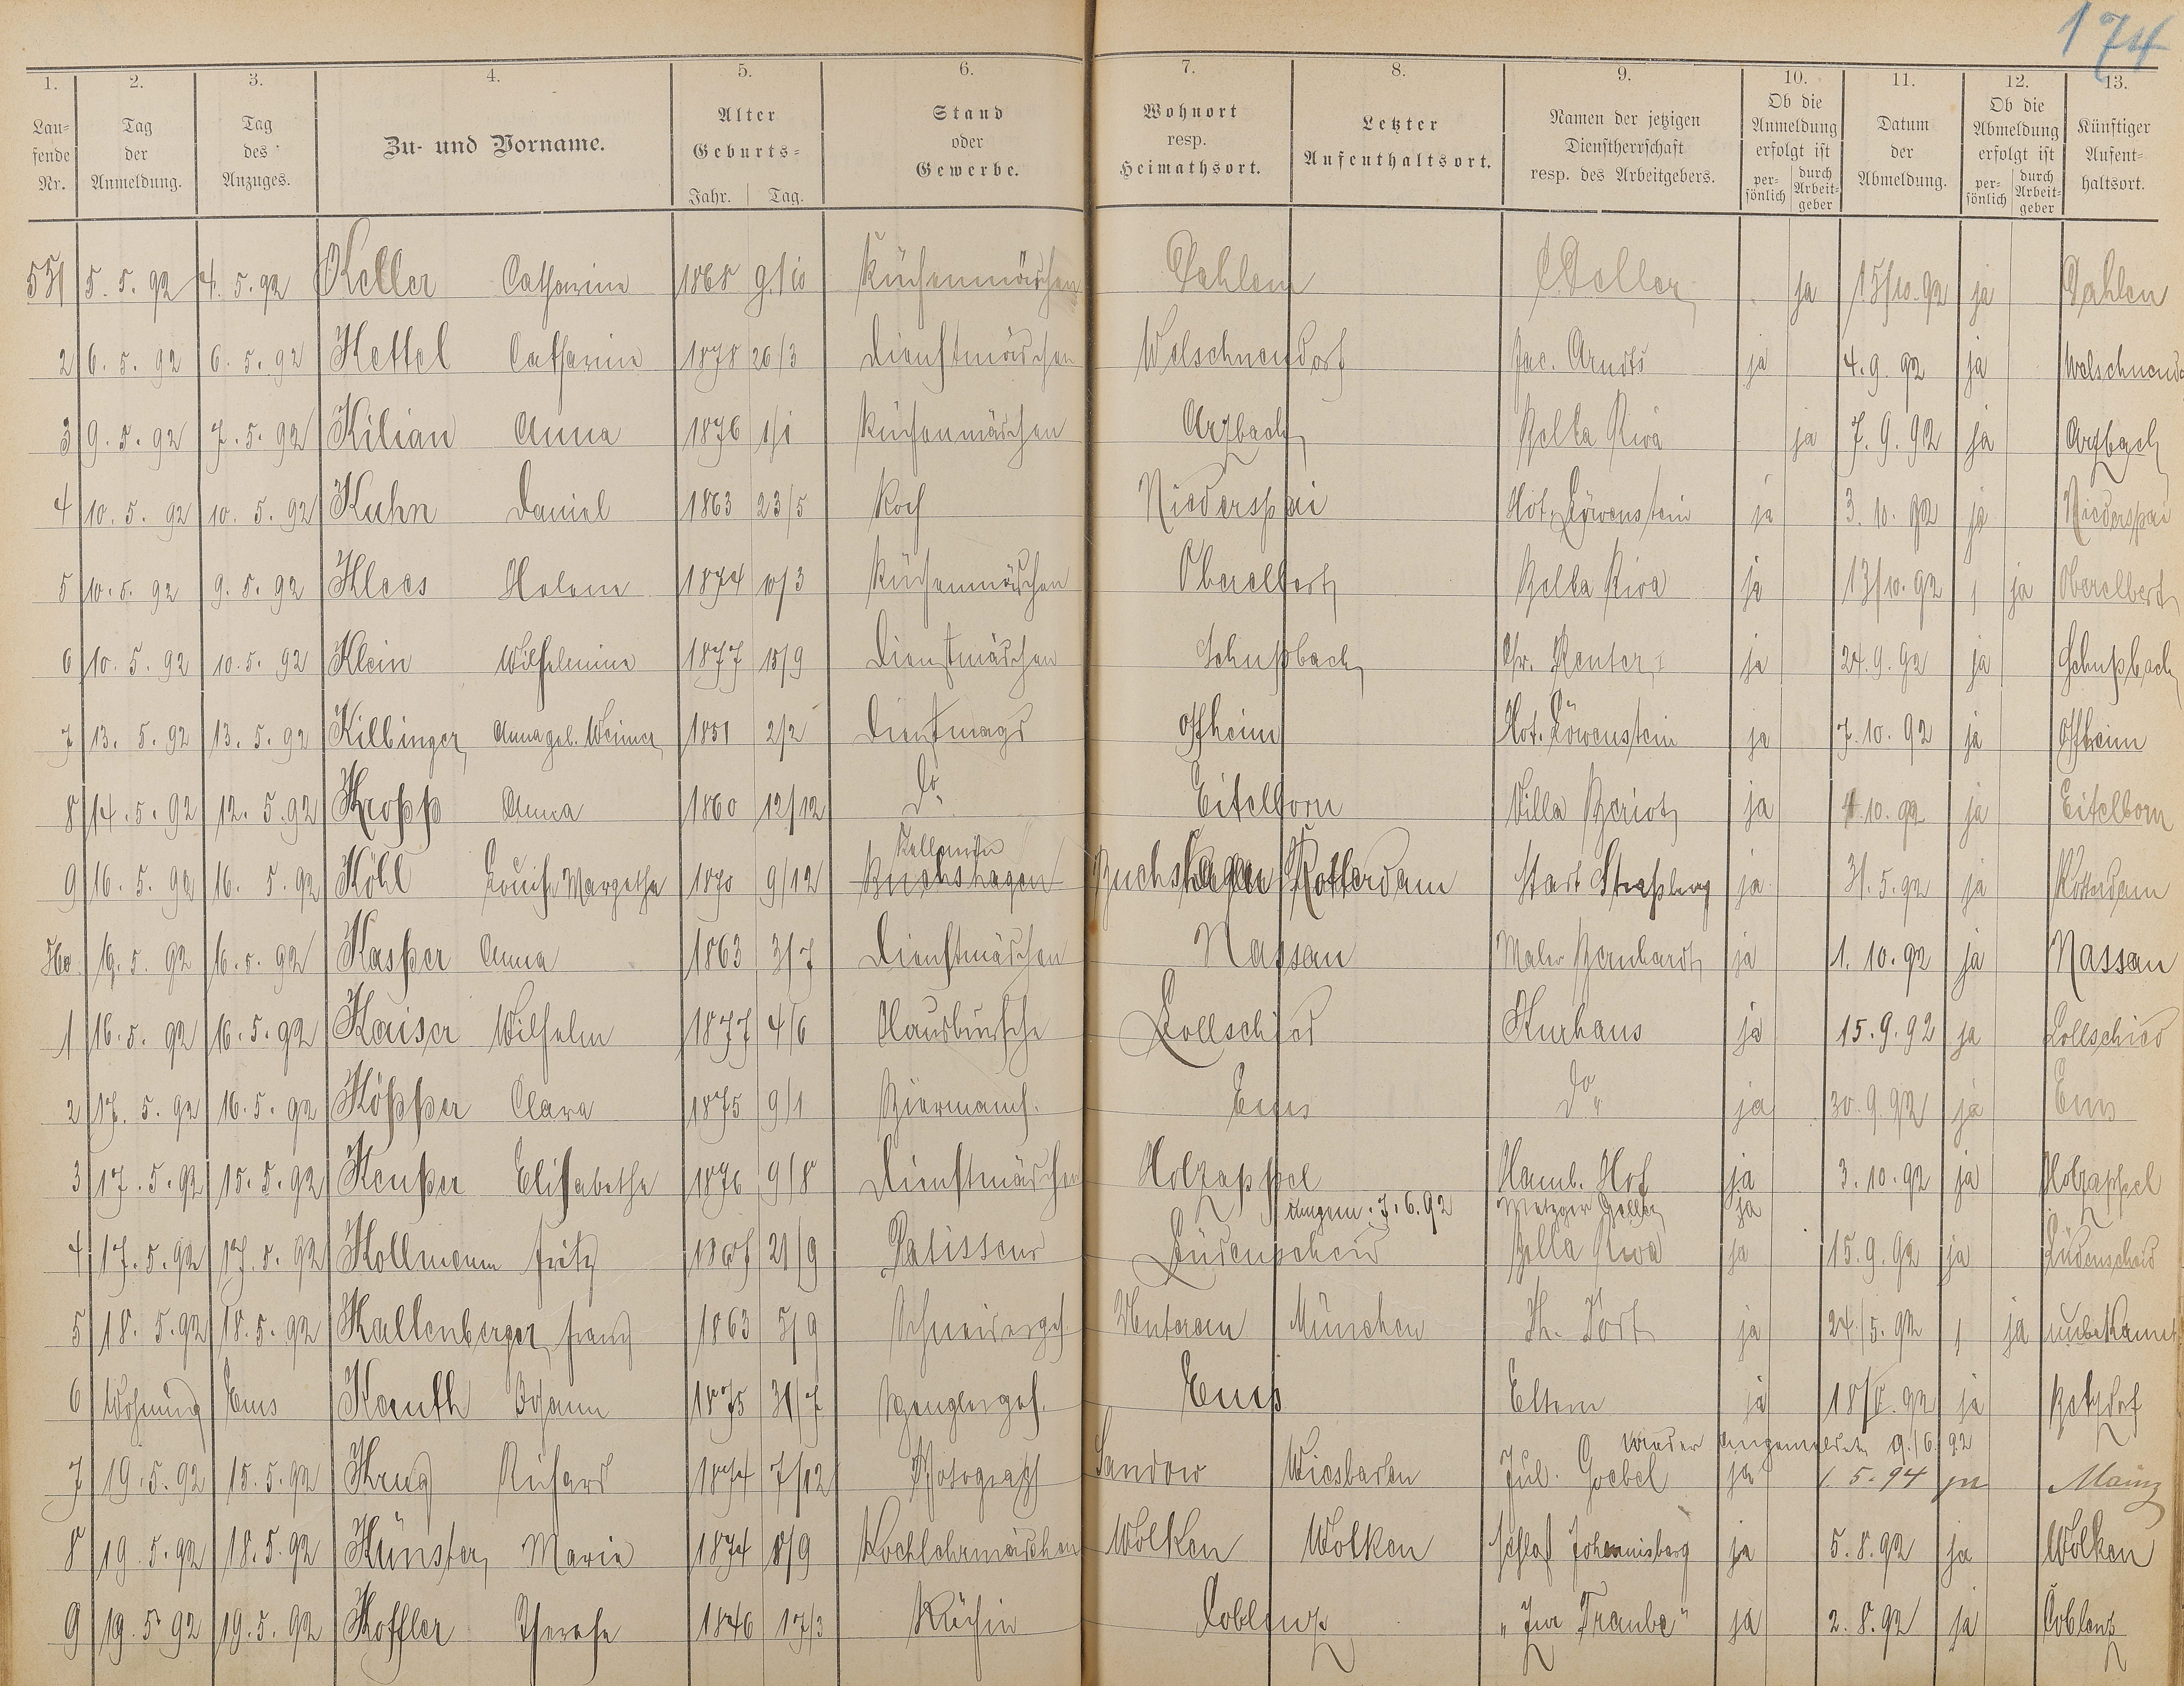 174
1. 2. 3. 4. 5. 6. 7. 8. 9. 10. 11. 12. 13.
Laufende Nr. | Tag der Anmeldung. | Tag des Anzuges. | Zu- und Vorname. | Alter Geburts- Jahr. Tag. | Stand oder Gewerbe. | Wohnort resp. Heimathsort. | Letzter Aufenthaltsort. | Namen der jetzigen Dienstherrschaft resp. des Arbeitgebers. | Ob die Anmeldung erfolgt ist persönlich durch Arbeitgeber | Datum der Abmeldung. | Ob die Abmeldung erfolgt ist persönlich durch Arbeitgeber | Künftiger Aufenthaltsort.
531 5. 5. 92 4. 5. 92 Keller Catharine 1868 9/10 Küchenmädchen Dahlem ja 15/10. 92 ja Dahlen
2 6. 5. 92 6. 5. 92 Kettel Catharine 1878 26/3 Dienstmädchen Welschneudorf Jac. Arndts ja 4. 9. 92 ja Welschneudo
3 9. 5. 92 7. 5. 92 Kilian Anna 1876 1/1 Küchenmädchen Arzbach Bella Riva ja 7. 9. 92 ja Arzbach
4 10. 5. 92 10. 5. 92 Kuhn Daniel 1863 23/5 Koch Niederspai Hot. Löwenstein ja 3. 10. 92 ja Niederspai
5 10. 5. 92 9. 5. 92 Klees Helene 1874 10/3 Küchenmädchen Oberelbert Bella Riva ja 13/10. 92 , ja Oberelbert
6 10. 5. 92 10. 5. 92 Klein Wilhelmine 1877 15/9 Dienstmädchen Schupbach Chr. Reuter ja 24. 9. 92 ja Schupbach
7 13. 5. 92 13. 5. 92 Kilbinger Anna geb. Weimer 1851 2/2 Dienstmagd Offheim Hot. Löwenstein ja 7. 10. 92 ja Offheim
8 14. 5. 92 12. 5. 92 Kropp Anna 1860 12/12 do. Eitelborn Villa Beriot ja 4. 10. 92 ja Eitelborn
Kellnerin
9 16. 5. 92 16. 5. 92 Köhl Louise Margetha 1870 9/12 Buchshagen Buchshagen Rotterdam Stadt Straßburg ja 31. 5. 92 ja Rotterdam
540 16. 5. 92 16. 5. 92 Kasper Anna 1863 3/7 Dienstmädchen Nassau Maler Bernhardt ja 1. 10. 92 ja Nassau
1 16. 5. 92 16. 5. 92 Kaiser Wilhelm 1877 4/6 Hausbursche Lollschied Kurhaus ja 15. 9. 92 ja Lollschied
2 17. 5. 92 16. 5. 92 Köpper Clara 1875 9/1 Ems do. ja 30. 9. 92 ja Ems
3 17. 5. 92 15. 5. 92 Keuper Elisabethe 1876 9/8 Dienstmädchen Holzappel Hamb. Hof ja 3. 10. 92 ja Holzappel
angem. 7. 6. 92 Metzger ja
4 17. 5. 92 17. 5. 92 Kollmann Fritz 21/9 Patisseur Lüdenscheid Bella Riva ja 15. 9. 92 ja Lüdenscheid
5 18. 5. 92 18. 5. 92 Kallenberger Franz 1863 5/9 Schneiderges. München ja 24/5. 92 , ja unbekannt
6 Wohnung Ems Kauth Johann 1875 31/7 Ems Eltern ja 18/5. 92 ja Betzdorf
wieder angemeldet 9./6. 92
7 19. 5. 92 15. 5. 92 Krug Richard 1874 7/12 Photograph Sandow Wiesbaden Jul. Goebel ja 1. 5. 94 ja Mainz
8 19. 5. 92 18. 5. 92 Künster Marie 1874 8/9 Kochlehrmädchen Wolken Wolken Schloß Johannisberg ja 5. 8. 92 ja Wolken
9 19. 5. 92 19. 5. 92 Koffler Therese 1846 17/3 Köchin Coblenz „Zur Traube" ja 2. 8. 92 ja Coblenz